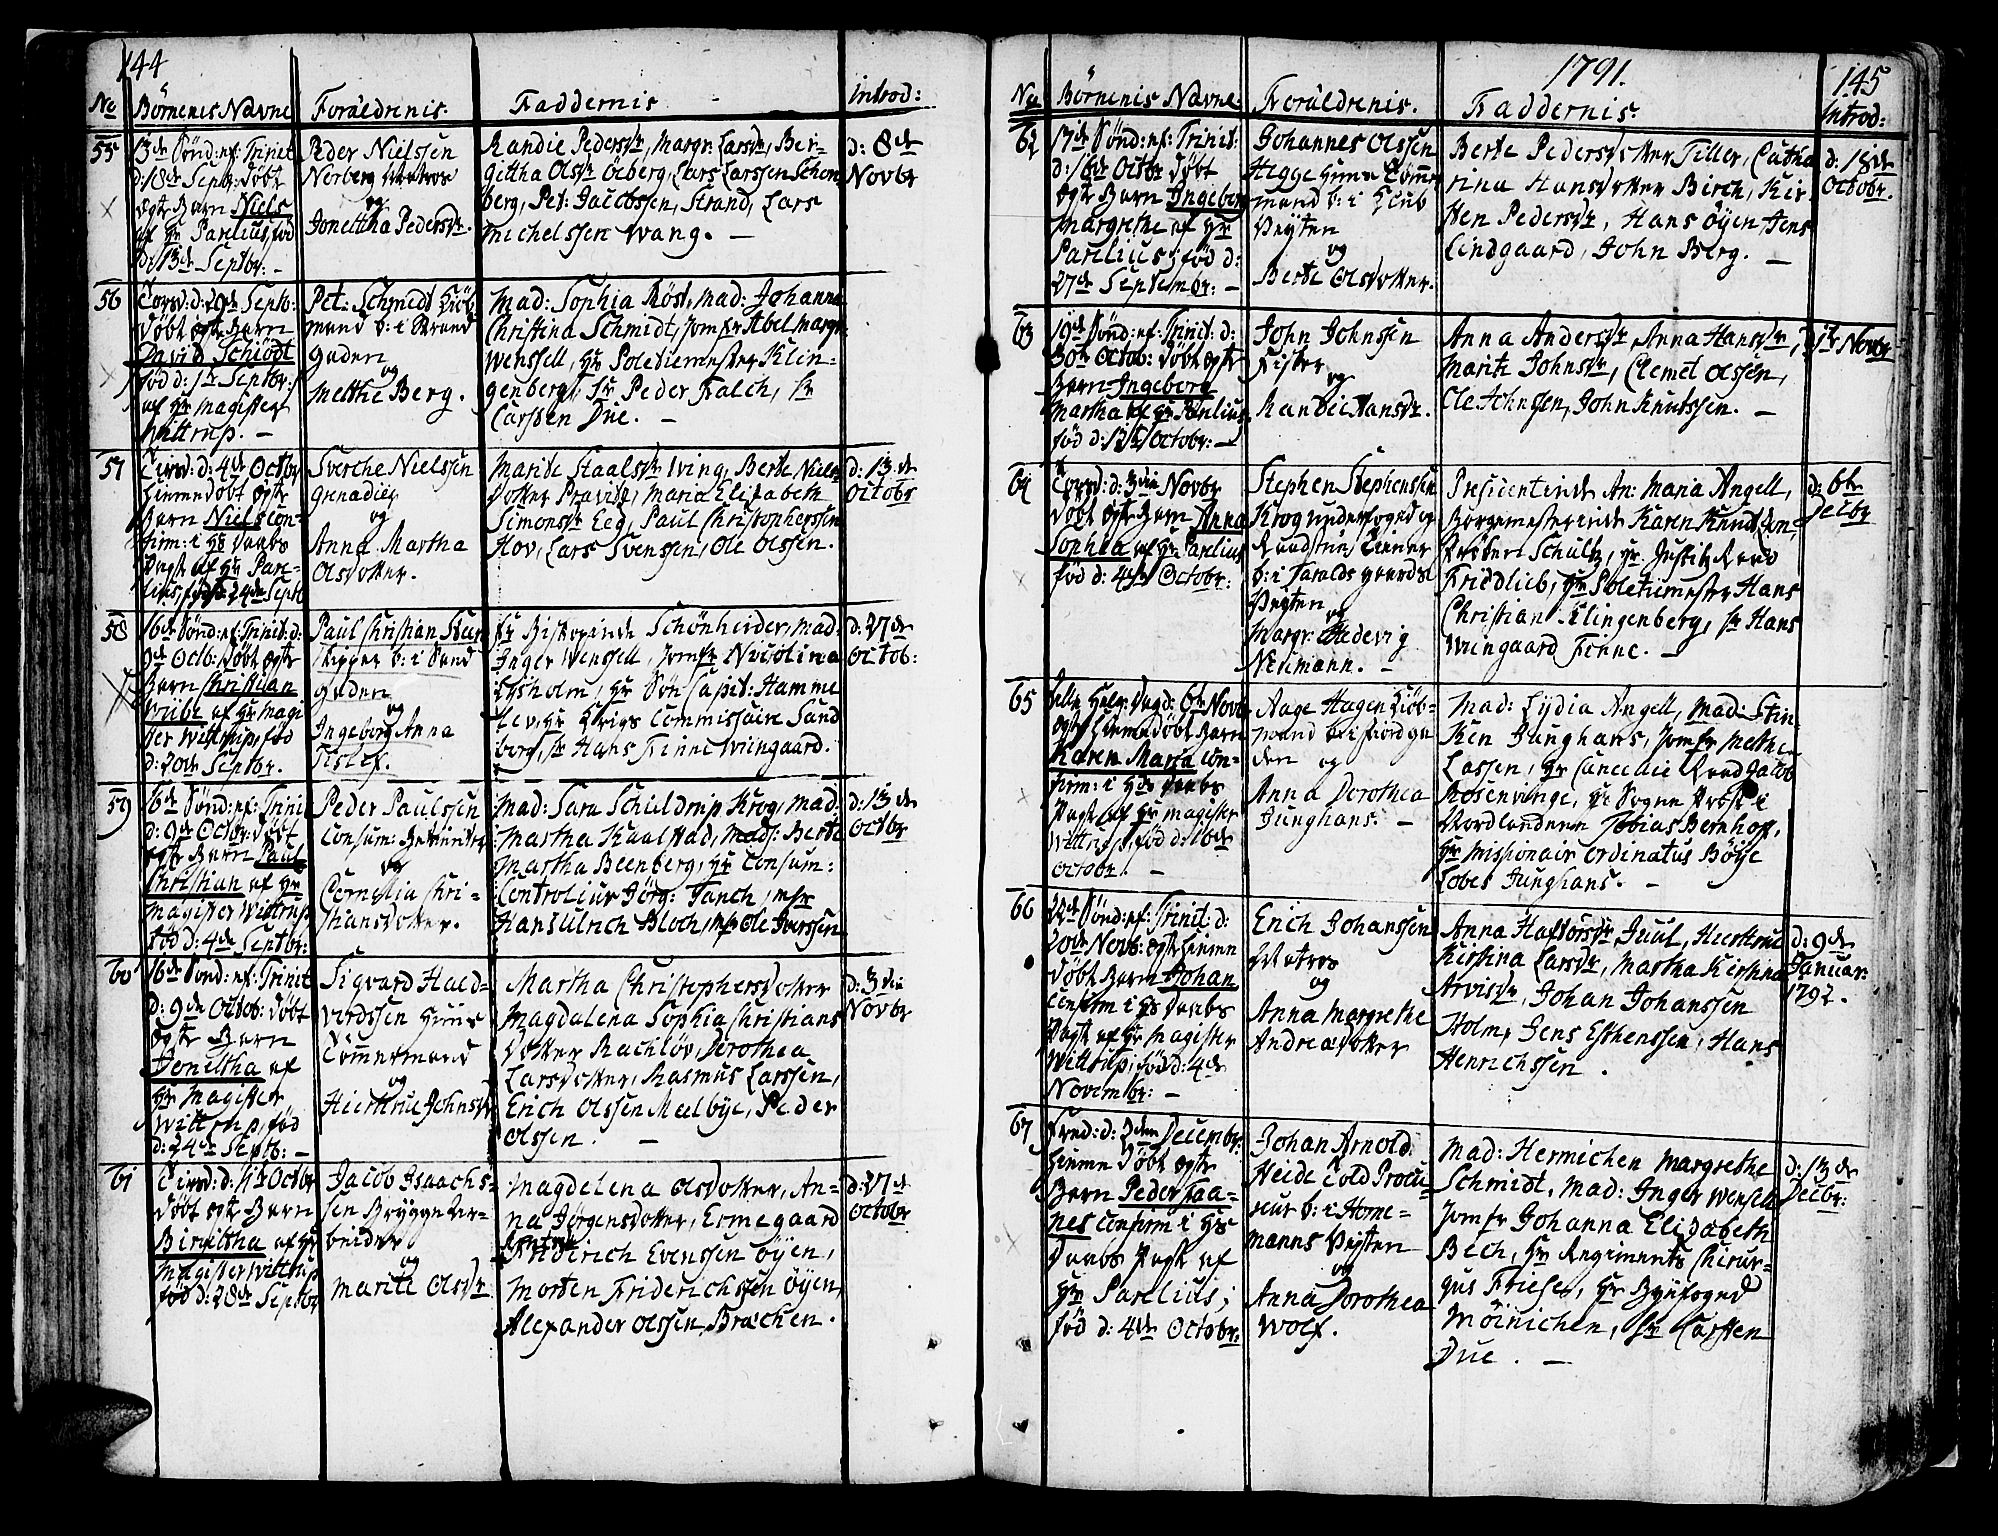 144
No Börnenis Navne Foræeldrenis. Faddernis Introd:
55
13de Sönd: ef: Trinit
d: 18de Septr: döbt
ægte Barn Niels
af Hr Parelius, fød
d: 13de Septbr: –
Peder Nielssen
Norberg Matros
og
Jonettha Pedersdr.
Randie Pedersdr, Margr: Larsdr, Ber-
gittha Olsdr Öeberg, Lars Larssen Schon
berg, Pet: Jacobssen, Strand, Lars
Michelssen Wang. –
d: 8de
Novbr
56
Torsd: d: 29de Septb:
døbt ægte Barn
David Schiödt
fød d: 1ste Septbr:
af Hr Magister
Wittrup. –
Pet: Schmedt Kiöb
mand b: i Strand
gaden
og
Metthe Berg.
Mad: Sophia Röst, Mad: Johanna
Christina Schmidt, Jomfr Abel Margr:
Wenssell, Hr Poletiemester Klin-
genberg, Sr Peder Falch, Sr
Carsten Due. –
57
Tirsd: d: 4de Octbr
hiemmedøbt ægte
Barn Niels con-
firm: i Hs Daabs
Pagt af Hr Pare-
lius, fød d: 24de Septb
Sverche Nielssen
Grenadier
og
Anna Martha
Olsdotter.
Marite Staalsdr Wing, Berte Niels
dotter Pravits, Maria Elisabeth
Simonsdr Eeg, Paul Christopherssen
Hov, Lars Svenssen, Ole Olssen.
d: 13de
Octobr
58
16de Sönd: ef: Trinit: d:
9de Octb: døbt ægte
Barn Christian
Wibe af Hr Magi
ster Wittrup, fød
d: 20de Septbr.
Paul Christian Steen
Skipper b: i Sand
gaden
og
Ingeborg Anna
Tislef.
Fr Bispinde Schönheider, Mad:
Inger Wenssell, Jomfr Nicolina
Lysholm, Hr Sön Capit: Hamme
lev, Hr Krigs Commissaire Sund
borg, Sr Hans Finne Wiingaard.
d: 27de
Octob:
59
16de Sönd: ef: Trinit
d: 9de Octbr: døbt
ægte Barn Paul
Christian af Hr
Magister Wittrup
fød d: 4de Septbr:
Peder Paulssen
Consum: Betienter
og
Cornelia Chri-
stiansdotter.
Mad: Sara Schieldrup Krog, Mad:
Martha Kaalstad, Mads: Berte
Martha Beenberg, Hr Consum:
Controlleur Jörg: Tanch, Mr
Hans Ulrich Bloch, Mr Ole Iverssen
d: 13de
Octbr
60
16de Sönd: ef: Trinit
d: 9de Octob: døbt
ægte Barn
Jenettha af
Hr Magister
Wittrup, fød
d: 24de Septb: –
Sigvard Hald-
vordssen Huus
Tömmermand
og
Hiertrue Johnsdr
Martha Christophersdotter
Magdalena Sophia Christians
dotter Rachlöv, Dorothea
Larsdotter, Rasmus Larssen,
Erich Olssen Meelbye, Peder
Olssen. –
d: 3die
Novbr
61
Tirsd: d: 11te Octbr
døbt ægte Barn
Birettha af Hr
Magister Wittrup
fød d: 28de Septbr
Jacob Isaachs-
sen Bryggear-
beider
og
Marite Olsdr
Magdelena Olsdotter, An-
na Jörgensdotter, Ermegaard
Friderich Evenssen Öyen,
Morten Friderichssen Öyen,
Alexander Olssen Brachen.
d: 27de
Octobr
1791. 145
No Börnenis Navne: Foræeldrenis. Faddernis: Introd:
62
17de Sönd: ef: Trinit:
d: 16de Octbr døbt
ægte Barn Ingeborg
Margrethe af Hr
Parelius, fød d:
27de Septembr: –
Johannes Olssen
Hegge Huus Tömmer
mand b: i Klub
Veyten
og
Berte Olsdotter.
Berte Pedersdotter Tiller, Catha
rina Hansdotter Birch, Kir
sten Pedersdr, Hans Öyen, Jens
Lindgaard, John Berg. –
d: 18de
Octobr.
63
19de Sönd: ef: Trinit: d:
30te Octob: døbt ægte
Barn Ingeborg
Martha af Hr Parelius
fød d: 12te Octobr: –
John Johnssen
Fister
og
Randi Hansdr.
Anna Andersdr, Anna Hansdr,
Marite Johnsdr, Clemet Olssen,
Ole Johnssen, John Knutssen. –
d: 1ste Novbr
64
Torsd: d: 3die Novbr
døbt ægte Barn Anna
Sophia af Hr Parelius
fød d: 4de Octobr:
Stephen Stephenssen
Krog Underfoged og
Raadstue Tiener
b: i Taralds gaards
Veyten
og
Margr: Hedevig
Neumann. –
Presidentinde An: Maria Angell,
Borgemesterinde Karen Knudtzon,
Schultz, Hr Justitz Raad
Friedlieb, Hr Poletiemester Hans
Christian Klingenberg, Sr Hans
Wiingaard Finne. –
d: 6te
Decbr
65
Alle Helg: Dag d: 6te Novb
ægte hiemmedøbt Barn
Karen Maria con-
firm: i Hs Daabs
Pagt af Hr Magister
Wittrup, fød d: 16de
Octobr. –
Aage Hagen Kiöb-
mand b: i Fiordga
den og
Anna Dorothea
Junghans. –
Mad: Lydia Angell, Mad: Stin
Ken Junghans, Jomfr Metthe
Lassen, Hr Cancellie Raad Jacob
Rosenvinge, Hr Sogne Præst i
Nordlandene Tobias Bernhof,
Hr Missionair Ordinatus Böije
Lobes Junghans. –
66
22de Sönd: ef: Trinit: d:
20de Novb: ægte hiemme
døbt Barn Johan
confirm i Hs Daabs
Pagt af Hr Magister
Wittrup, fød d: 4de
Novembr: –
Erich Johanssen
Matros
og
Anna Margrethe
Andreædotter
Anna Hafförsdr Juul, Hiertrue
Kirstina Larsdr, Martha Kirstina
Arvisdr, Johan Johanssen
Holm, Jens Esthenssen, Hans
Henrichssen.
d: 9de
Januar:
1792.
67
Fred: d: 2den Decembr:
hiemme døbt ægte
Barn Peder Faa-
nes confirm i Hs
Daabs Pagt af
Hr Parelius;
fød d: 4de Octobr:
Johan Arnold
Heide Told Procu-
reur b: i Home-
manns Veyten
og
Anna Dorothea
Wolf.
Mad: Hermichen Margrethe
Schmidt, Mad: Inger Wensell
Jomfr Johanna Elisabeth
Bech, Hr Regiments Chirur-
gus Friese, Hr Byefoged
Möinichen, Sr Carsten
Due. –
d: 13de
Decbr: